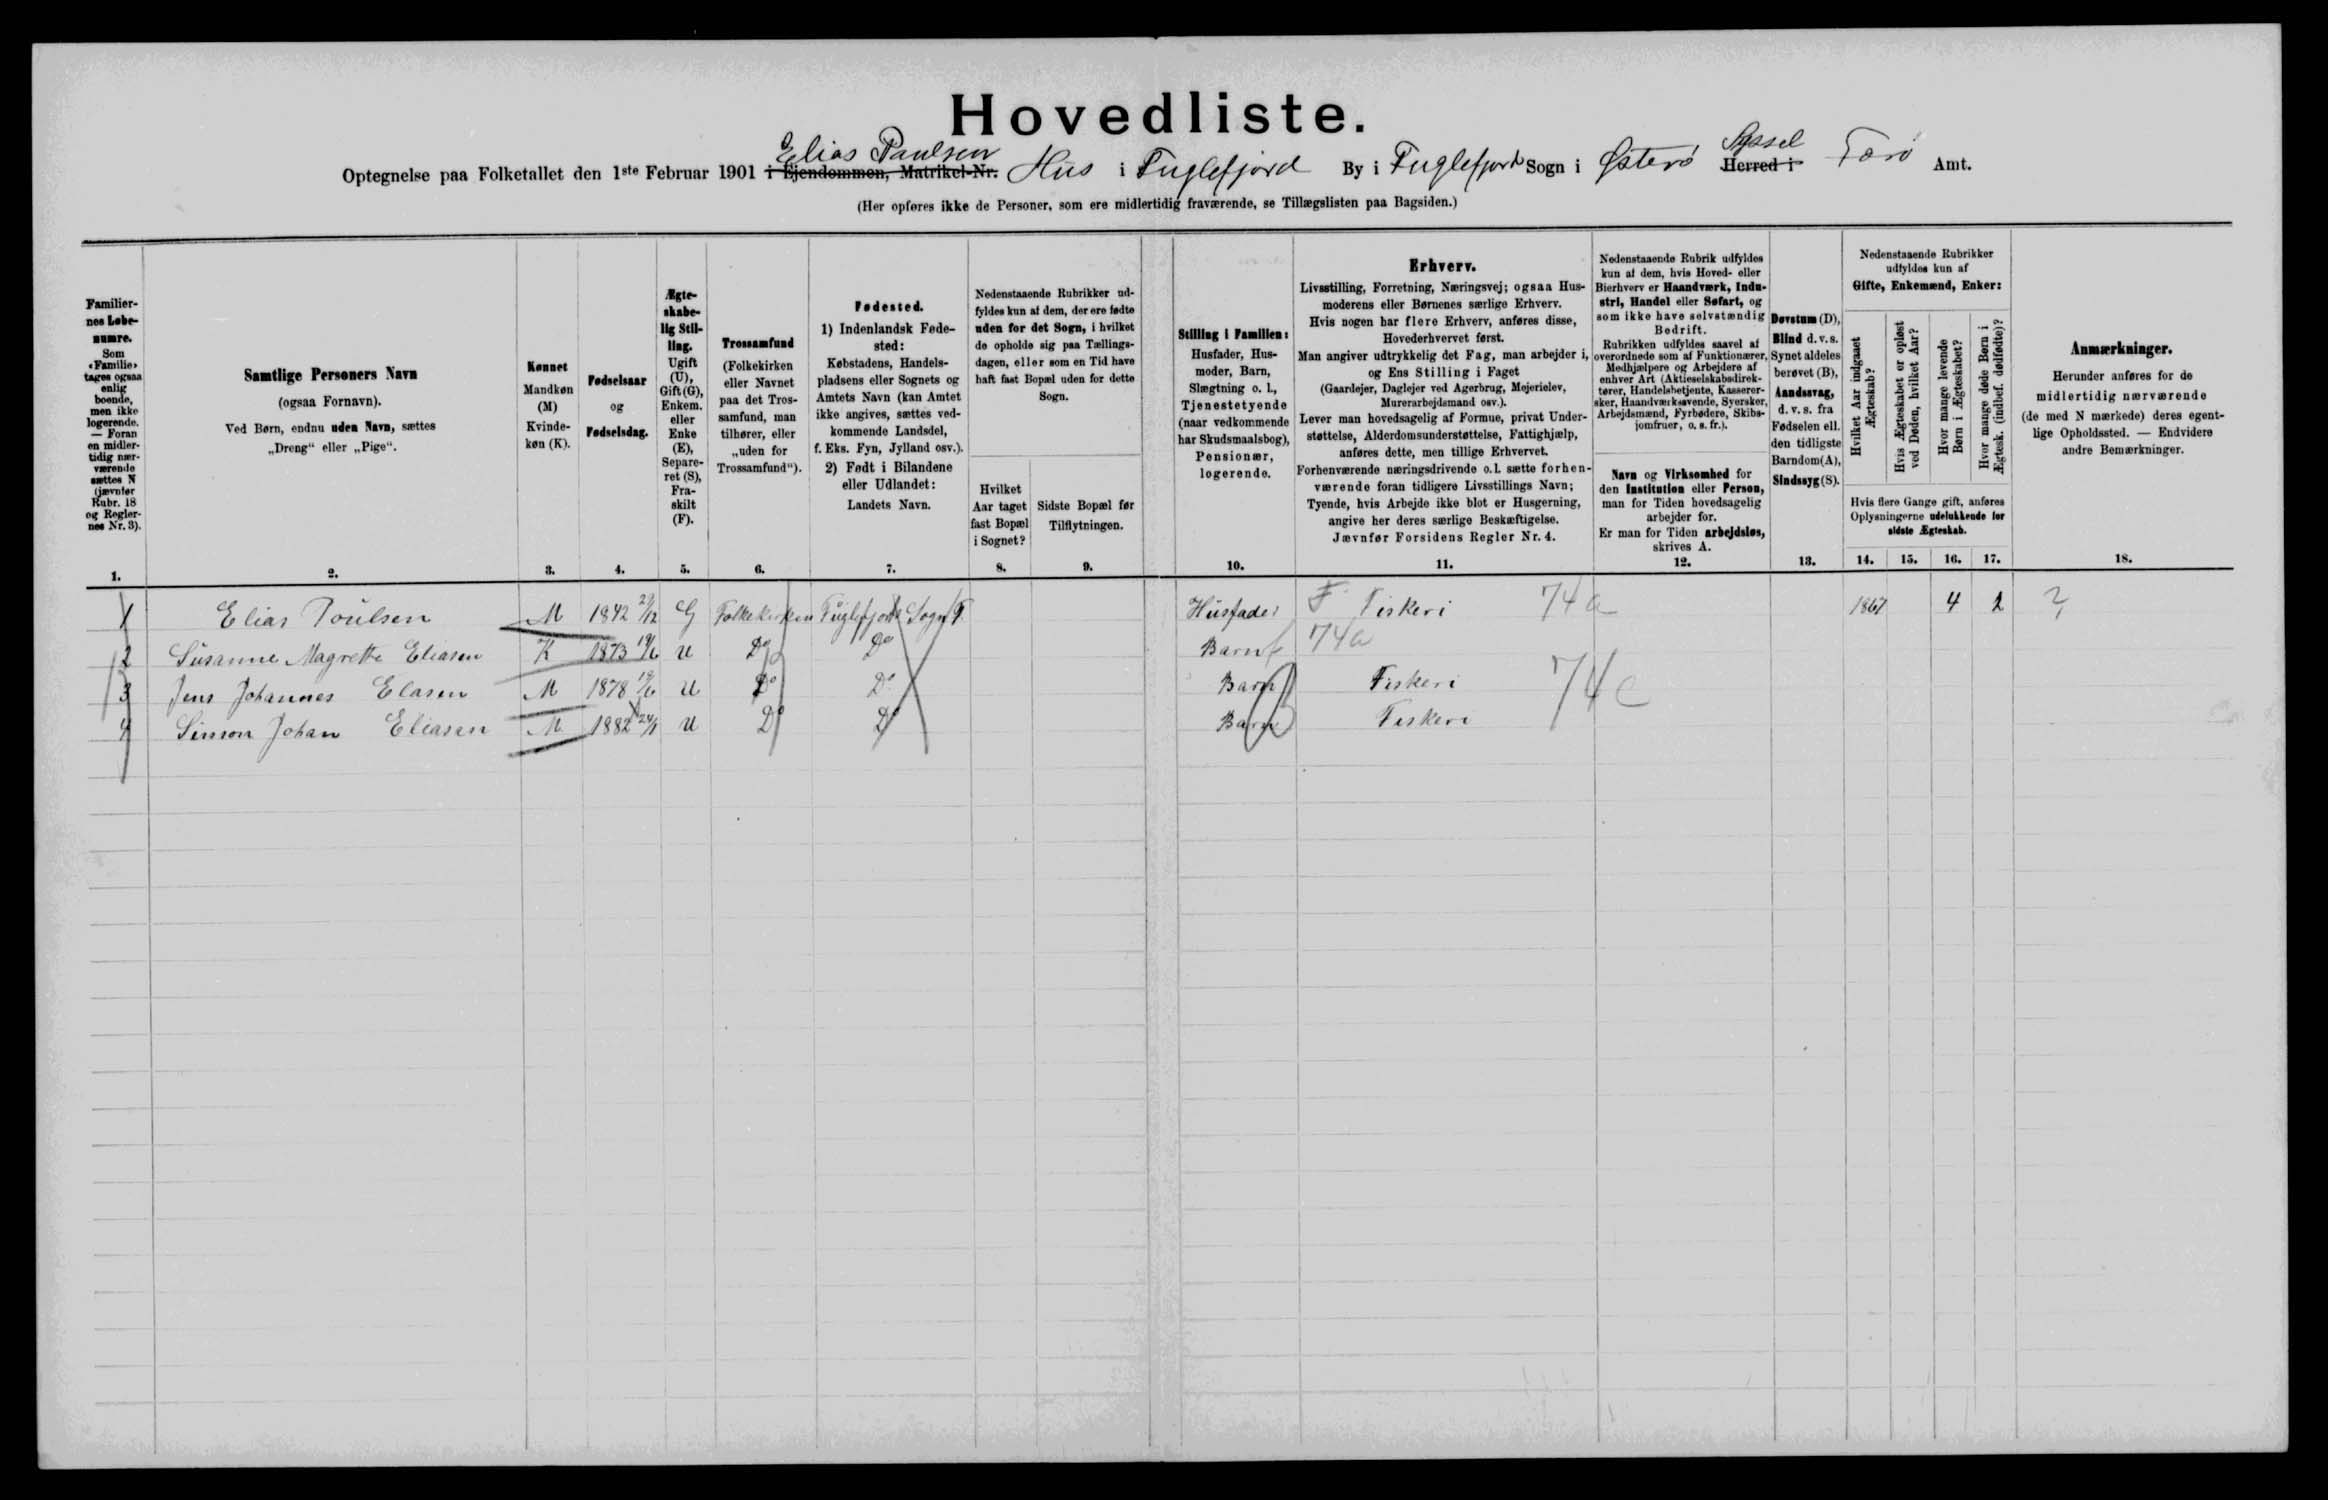 Hovedliste.
Optegnelse paa Folketallet den 1ste Februar 1901 i Ejendommen, Matrikel-Nr. Elias Paulsen Hus i Fuglefjord By i Fuglefjord Sogn i Østerø Herred i Syssel Færø Amt.
(Her opføres ikke de Personer, som ere midlertidig fraværende, se Tillægslisten paa Bagsiden.)
Familier-
nes Løbe-
numre.
Som
«Familie»
tages ogsaa
enlig
boende,
men ikke
logerende.
— Foran
en midler-
tidig nær-
værende
sættes N
(jævnfør
Rubr. 18
og Regler-
nes Nr. 3).
Samtlige Personers Navn
(ogsaa Fornavn).
Ved Børn, endnu uden Navn, sættes
„Dreng“ eller „Pige“.
Kønnet
Mandkøn
(M)
Kvinde-
køn (K).
Fødselsaar
og
Fødselsdag.
Ægte-
skabe-
lig Stil-
ling.
Ugift
(U),
Gift (G),
Enkem.
eller
Enke
(E),
Separe-
ret (S),
Fra-
skilt
(F).
Trossamfund
(Folkekirken
eller Navnet
paa det Tros-
samfund, man
tilhører, eller
„uden for
Trossamfund“).
Fødested.
1) Indenlandsk Føde-
sted:
Købstadens, Handels-
pladsens eller Sognets og
Amtets Navn (kan Amtet
ikke angives, sættes ved-
kommende Landsdel,
f. Eks. Fyn, Jylland osv.).
2) Født i Bilandene
eller Udlandet:
Landets Navn.
Nedenstaaende Rubrikker ud-
fyldes kun af dem, der ere fødte
uden for det Sogn, i hvilket
de opholde sig paa Tællings-
dagen, eller som en Tid have
haft fast Bopæl uden for dette
Sogn.
Hvilket
Aar taget
fast Bopæl
i Sognet?
Sidste Bopæl før
Tilflytningen.
Stilling i Familien:
Husfader, Hus-
moder, Barn,
Slægtning o. l.,
Tjenestetyende
(naar vedkommende
har Skudsmaalsbog),
Pensionær,
logerende.
Erhverv.
Livsstilling, Forretning, Næringsvej; ogsaa Hus-
moderens eller Børnenes særlige Erhverv.
Hvis nogen har flere Erhverv, anføres disse,
Hovederhvervet først.
Man angiver udtrykkelig det Fag, man arbejder i,
og Ens Stilling i Faget
(Gaardejer, Daglejer ved Agerbrug, Mejerielev,
Murerarbejdsmand osv.).
Lever man hovedsagelig af Formue, privat Under-
støttelse, Alderdomsunderstøttelse, Fattighjælp,
anføres dette, men tillige Erhvervet.
Forhenværende næringsdrivende o. l. sætte forhen-
værende foran tidligere Livsstillings Navn;
Tyende, hvis Arbejde ikke blot er Husgerning,
angive her deres særlige Beskæftigelse.
Jævnfør Forsidens Regler Nr. 4.
Nedenstaaende Rubrik udfyldes
kun af dem, hvis Hoved- eller
Bierhverv er Haandværk, Indu-
stri, Handel eller Søfart, og
som ikke have selvstændig
Bedrift.
Rubrikken udfyldes saavel af
overordnede som af Funktionærer,
Medhjælpere og Arbejdere af
enhver Art (Aktieselskabsdirek-
tører, Handelsbetjente, Kasserer-
sker, Haandværkssvende, Syersker,
Arbejdsmænd, Fyrbødere, Skibs-
jomfruer, o. s. fr.).
Navn og Virksomhed for
den Institution eller Person,
man for Tiden hovedsagelig
arbejder for.
Er man for Tiden arbejdsløs,
skrives A.
Døvstum (D),
Blind d. v. s.
Synet aldeles
berøvet (B),
Aandssvag,
d. v. s. fra
Fødselen ell.
den tidligste
Barndom (A),
Sindssyg (S).
Nedenstaaende Rubrikker
udfyldes kun af
Gifte, Enkemænd, Enker:
Hvilket Aar indgaaet
Ægteskab?
Hvis Ægteskabet er opløst
ved Døden, hvilket Aar?
Hvor mange levende
Børn i Ægteskabet?
Hvor mange døde Børn i
Ægtesk. (indbef. dødfødte)?
Hvis flere Gange gift, anføres
Oplysningerne udelukkende for
sidste Ægteskab.
Anmærkninger.
Herunder anføres for de
midlertidig nærværende
(de med N mærkede) deres egent-
lige Opholdssted. — Endvidere
andre Bemærkninger.
1. 2. 3. 4. 5. 6. 7. 8. 9. 10. 11. 12. 13. 14. 15. 16. 17. 18.
1 Elias Poulsen M 1842 29/12 G Folkekirken Fuglefjords Sogn F. Husfader F. Fiskeri 74 a 1867 4 2 ?
2 Susanne Magrethe Eliasen K 1873 19/6 U Do Do Barn f 74a
3 Jens Johannes Elasen M 1878 19/6 U Do Do Barn Fiskeri 74 c
4 Simson Johan Eliasen M 1882 24/1 U Do Do Barn Fiskeri